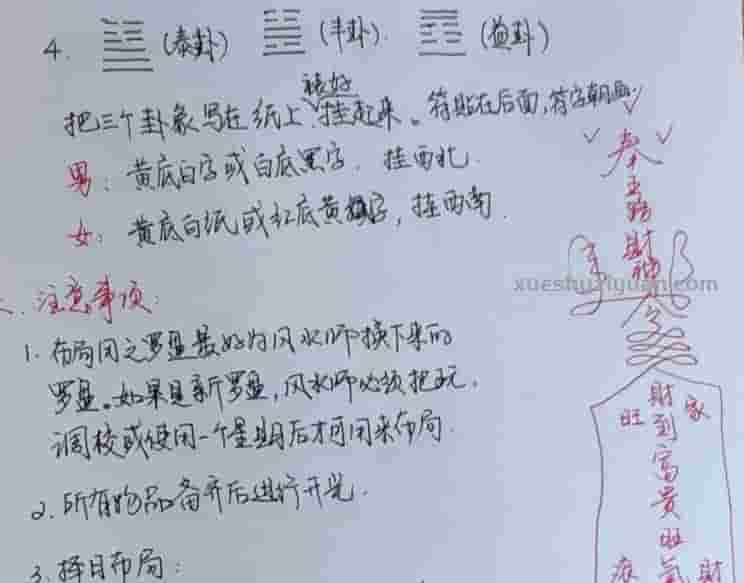 4. (泰卦) (丰卦). (益卦)
裱好
把三个卦象写在纸上,挂起来。符贴在后面,符字朝画.
男: 黄底白字或白底黑字. 挂西北.
女: 黄底白纸或红底黄字, 挂西南.
注意事项:
1. 布局用之罗盘最好为风水师换下来的
罗盘。如果是新罗盘,风水师必须把玩,
调校或使用一个星期后才可用来布局.
2. 所有物品备齐后进行开光.
3. 择日布局:
奉
五路
財神
令
xueshuziyuan.com
財到富貴旺氣
旺
家
財